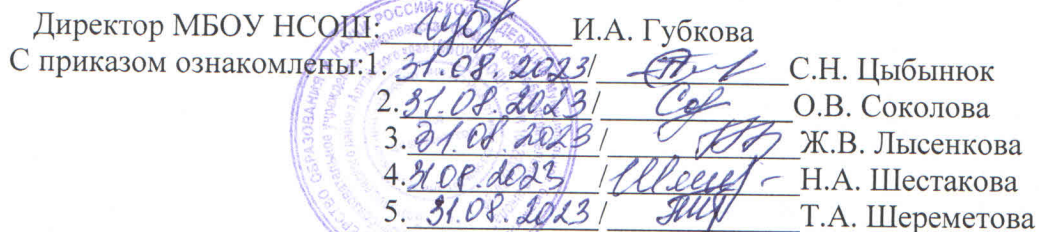 Директор МБОУ НСОШ: И.А. Губкова
С приказом ознакомлены:1. 31.08.2023/ С.Н. Цыбынюк
2. 31.08.2023/ О.В. Соколова
3. 31.08.2023/ Ж.В. Лысенкова
4. 31.08.2023 / Н.А. Шестакова
5. 31.08.2023/ Т.А. Шереметова